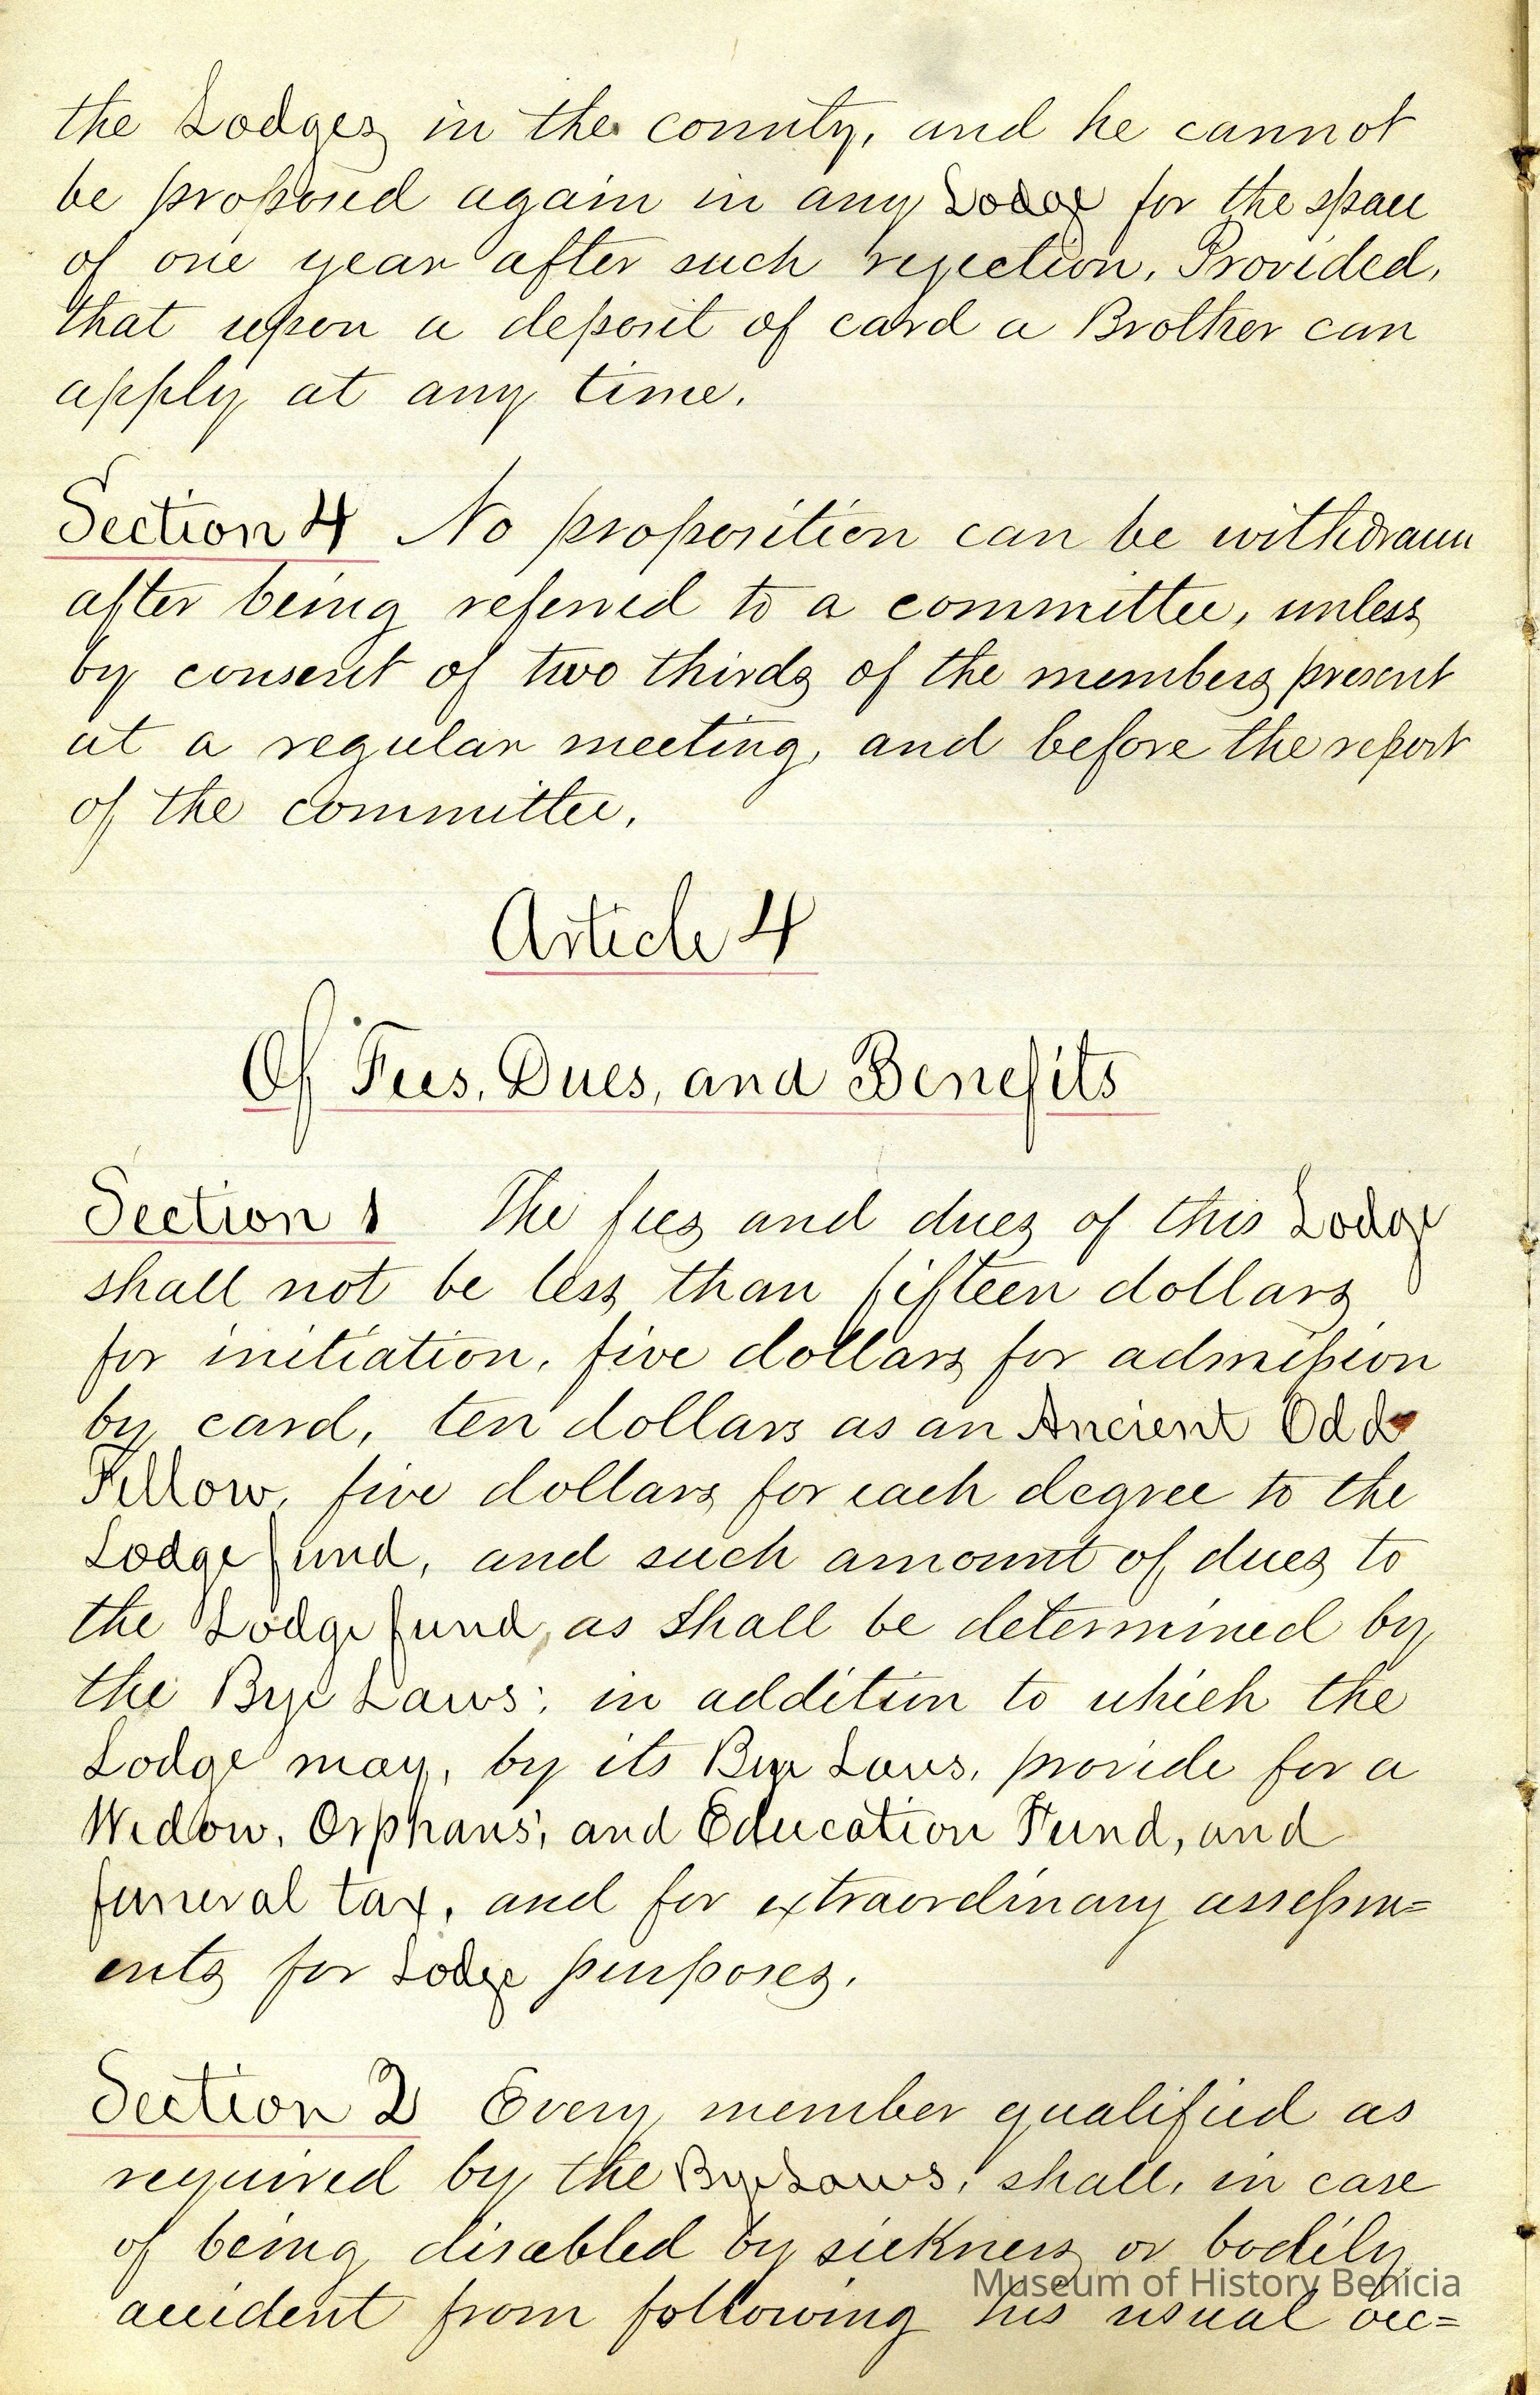 the Lodges in the county, and he cannot
be proposed again in any Lodge for the space
of one year after such rejection, Provided,
that upon a deposit of card a Brother can
apply at any time.
Section 4 No proposition can be withdrawn
after being referred to a committee, unless
by consent of two thirds of the members present
at a regular meeting, and before the report
of the committee.
Article 4
Of Fees, Dues, and Benefits
Section 1 The fees and dues of this Lodge
shall not be less than fifteen dollars
for initiation, five dollars for admission
by card, ten dollars as an Ancient Odd
Fellow, five dollars for each degree to the
Lodge fund, and such amount of dues to
the Lodge fund, as shall be determined by
the Bye Laws; in addition to which the
Lodge may, by its Bye Laws, provide for a
Widow, Orphans', and Education Fund, and
funeral tax, and for extraordinary assessm=
ents for Lodge purposes.
Section 2 Every member qualified as
required by the Bye Laws, shall, in case
of being disabled by sickness or bodily
Museum of History Benicia
accident from following his usual occ=